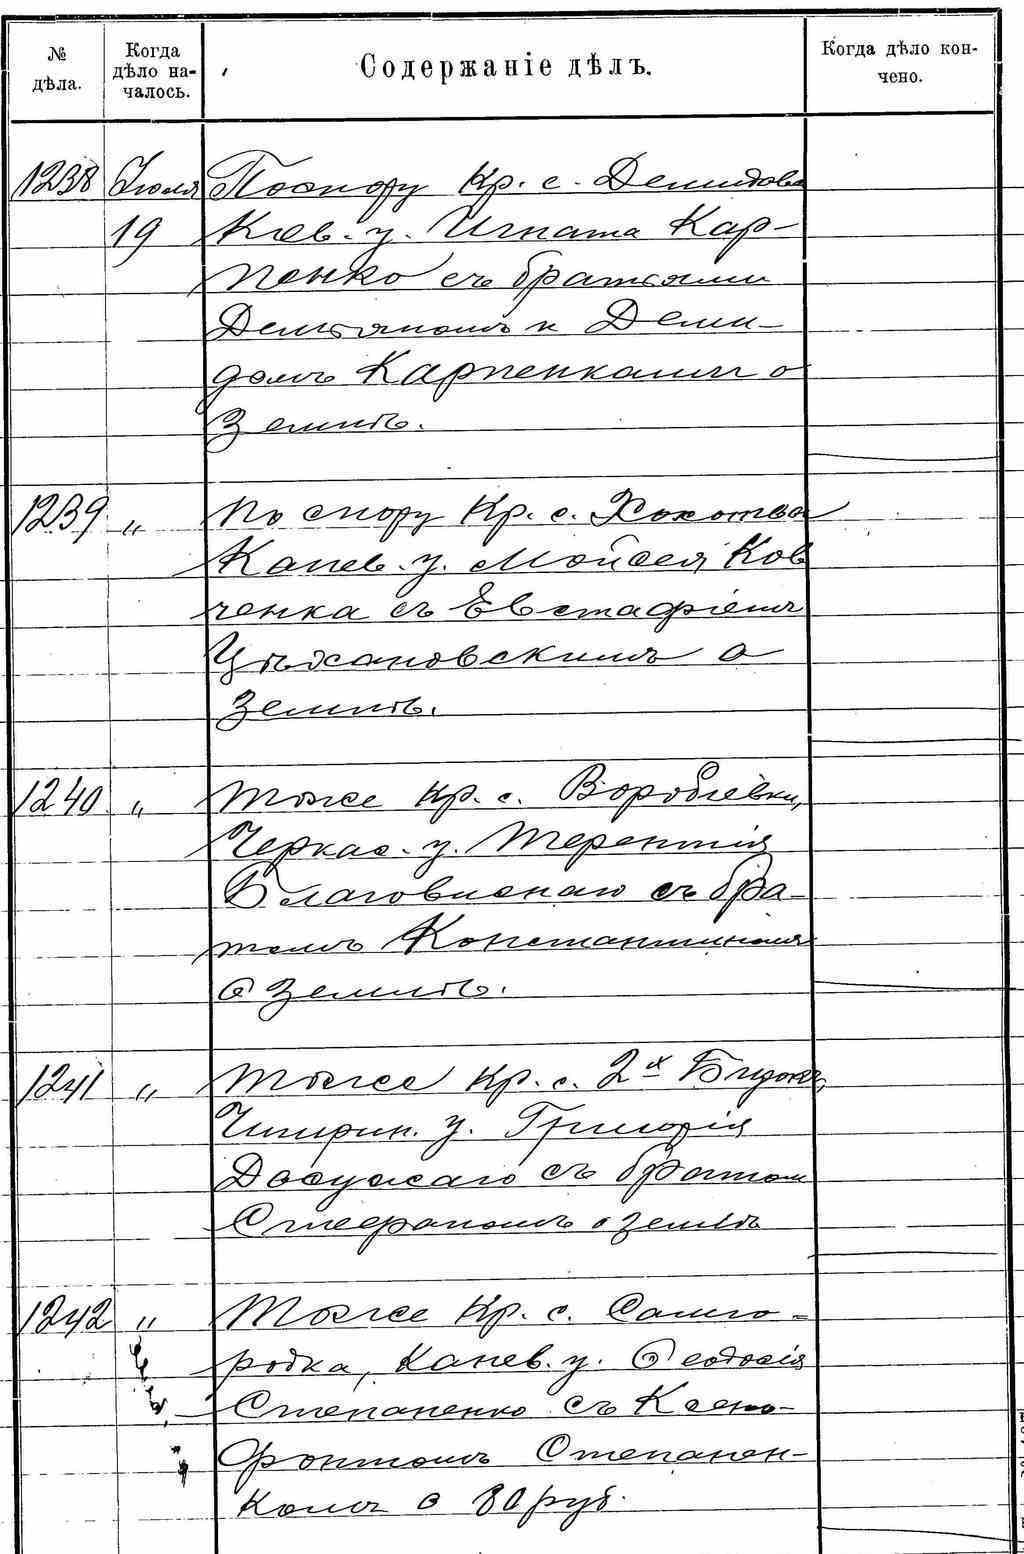 № дѣла.
Когда дѣло началось.
Содержаніе дѣлъ.
Когда дѣло кончено.
1238 Іюля 19 По спору Кр. с. Демидова
Кіев. у. Игната Кар-
пенко съ братьями
Демьяномъ и Деми-
домъ Карпенками о
Землѣ.
1239 " По спору Кр. с. Хохотва
Канев. у. Мойсея Ков
ченка съ Евстафіемъ
Цѣхановскимъ о
Землѣ.
1240 " Тоже Кр. с. Воробіевки,
Черкас. у. Терентія
Благовиснаго съ бра-
томъ Константиномъ
о Землѣ.
1241 " Тоже Кр. с. 2х
Чигирин. у. Григорія
Досужаго съ братом
Стефаномъ о землѣ
1242 " Тоже Кр. с. Самго-
родка, Канев. у. Ѳеодосія
Степаненко съ Ксено-
фонтомъ Степанен-
комъ о 80 руб.